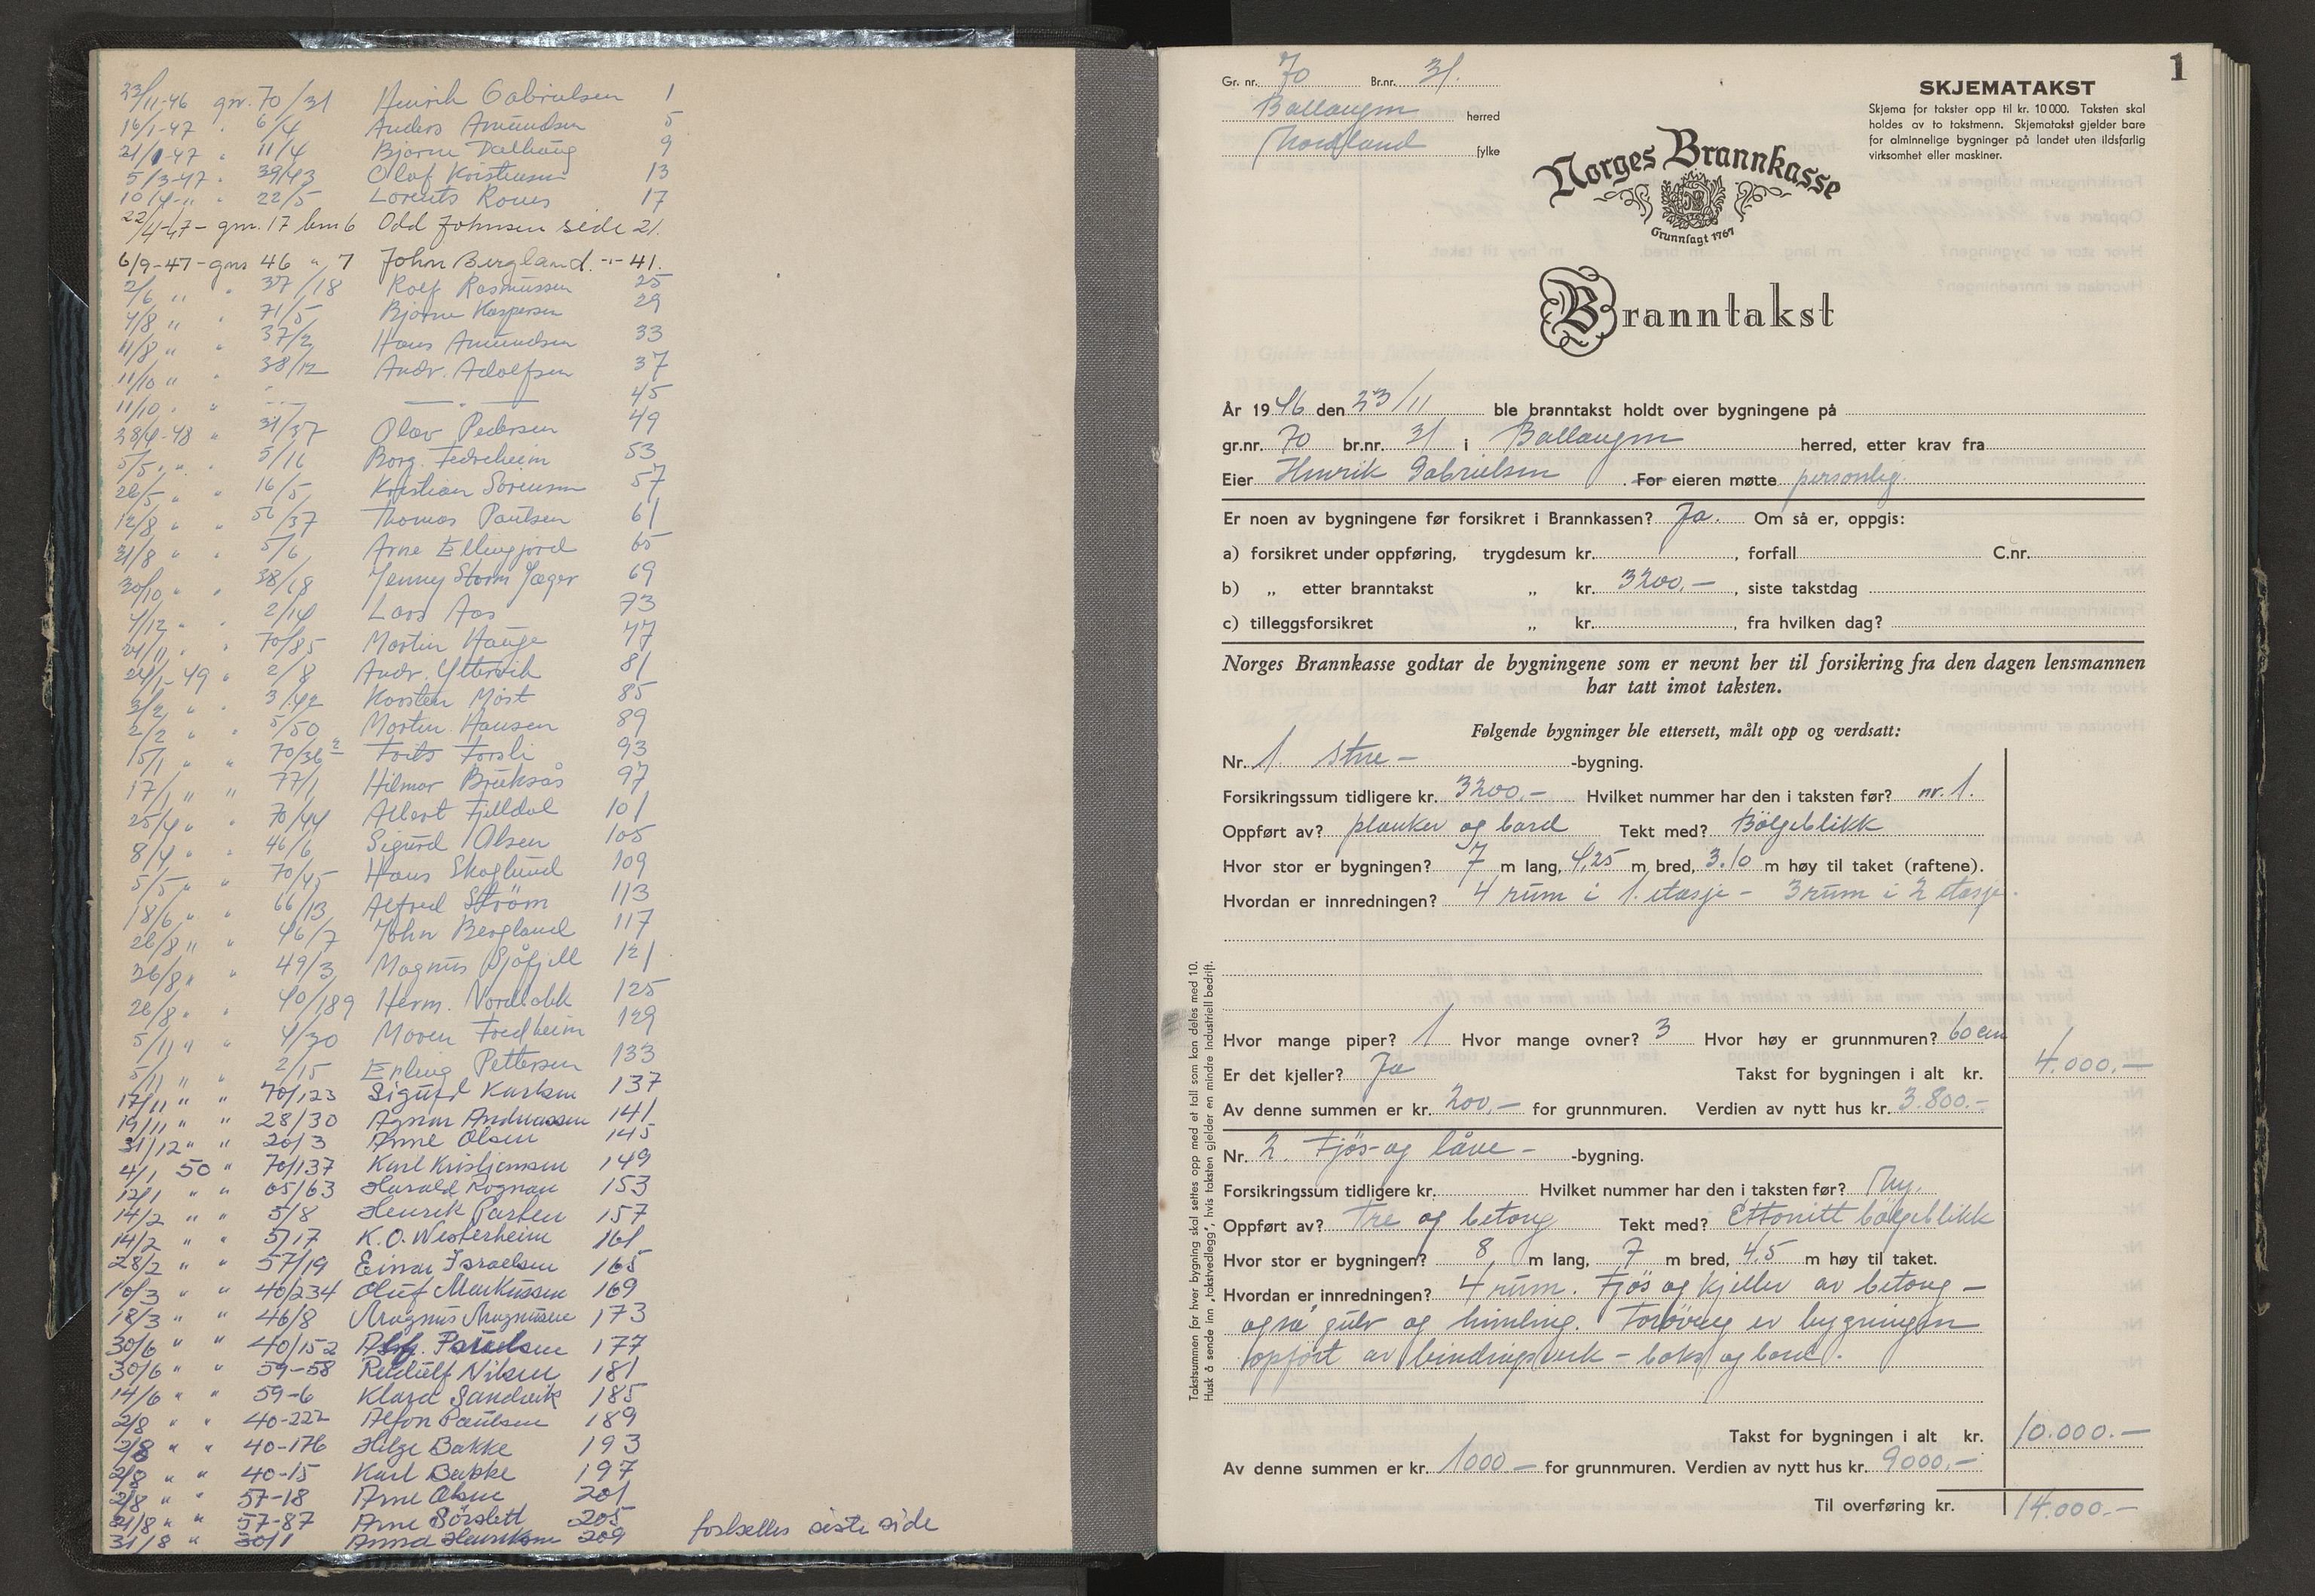 23/11-46 gnr. 70/31 Henrik Gabrielsen 1
16/1-47 " 6/4 Anders Amundsen 5
21/1-47 " 11/4 Bjarne Dalhaug 9
5/3-47 " 39/43 Olaf Kristensen 13
10/4-" " 22/5 Lorents Roms 17
22/4-47 - gnr. 17 bnr 6 Odd Johnsen side 21.
6/9-47 - gnr 46 " 7 John Bergland. -"- 41.
2/6 " " 37/18 Rolf Rasmussen 25
4/8 " " 71/5 Bjarne Kaspersen 29
11/8 " " 37/2 Hans Amundsen 33
11/10 " " 38/12 Andr. Adolfsen 37
11/10 " " -"- — " — 45
28/4-48 " 31/37 Olav Pedersen 49
5/5 " " 5/16 Borg. Fedreheim 53
26/5 " " 16/5 Kristian Sörensen 57
12/8 " " 56/37 Thomas Paulsen 61
31/8 " " 5/6 Arne Ellingjord 65
30/10 " " 38/18 Jenny Storm Jæger 69
4/12 " " 2/14 Lars Aas 73
21/11 " " 70/85 Martin Hauge 77
24/1-49 " 2/8 Andr. Yttervik 81
3/2 " " 3/42 Karsten Möst 85
2/2 " " 5/50 Martin Hansen 89
15/1 " " 70/36 2 Frits Forsli 93
17/1 " " 77/1 Hilmar Bruksås 97
25/4 " " 70/44 Albert Fjelldal 101
8/4 " " 46/6 Sigurd Olsen 105
5/5 " " 70/45 Hans Skoglund 109
18/6 " " 66/13 Alfred Ström 113
26/8 " " 46/7 John Bergland 117
26/8 " " 49/3 Magnus Sjåfjell 121
26/8 " " 40/189 Herm. Nordbakk 125
5/11 " " 4/30 Maren Fredheim 129
5/11 " " 2/15 Erling Pettersen 133
17/11 " " 70/123 Sigurd Karlsen 137
19/11 " " 28/30 Agnar Andreassen 141
31/12 " " 20/3 Arne Olsen 145
4/1 50 " 70/137 Karl Kristiansen 149
12/1 " " 65/63 Harald Rognan 153
14/2 " " 5/8 Henrik Parken 157
14/2 " " 5/17 K. O. Westerheim 161
28/2 " " 57/19 Einar Israelsen 165
10/3 " " 40/234 Oluf Markussen 169
18/3 " " 46/8 Magnus Magnussen 173
30/6 " " 40/152 Alf. Paulsen 177
30/6 " " 59-58 Rudolf Nilsen 181
14/6 " " 59-6 Klara Sandvik 185
2/8 " " 40-222 Alfon Paulsen 189
2/8 " " 40-176 Hilge Bakke 193
2/8 " " 40-15 Karl Bakke 197
2/8 " " 57-18 Arne Olsen 201
21/8 " " 57-87 Arne Sörslett 205
31/8 " 30/1 Anna Henriksen 209 fortsettes siste side
1
Gr. nr. 70 Br.nr. 31.
Ballangen herred
Nordland fylke
SKJEMATAKST
Skjema for takster opp til kr. 10 000. Taksten skal
holdes av to takstmenn. Skjematakst gjelder bare
for alminnelige bygninger på landet uten ildsfarlig
virksomhet eller maskiner.
Norges Brannkasse
Grunnlagt 1767
Branntakst
År 1946 den 23/11 ble branntakst holdt over bygningene på
gr.nr. 70 br.nr. 31 i Ballangen herred, etter krav fra
Eier Henrik Gabrielsen . For eieren møtte personlig.
Er noen av bygningene før forsikret i Brannkassen? Ja. Om så er, oppgis:
a) forsikret under oppføring, trygdesum kr. , forfall C.nr.
b) „ etter branntakst „ kr. 3200,- , siste takstdag
c) tilleggsforsikret „ kr. , fra hvilken dag?
Norges Brannkasse godtar de bygningene som er nevnt her til forsikring fra den dagen lensmannen
har tatt imot taksten.
Følgende bygninger ble ettersett, målt opp og verdsatt:
Nr. 1. Stue- -bygning.
Forsikringssum tidligere kr. 3200,- Hvilket nummer har den i taksten før? nr. 1.
Oppført av? planker og bord Tekt med? Bölgeblikk
Hvor stor er bygningen? 7 m lang, 4,25 m bred, 3.10 m høy til taket (raftene).
Hvordan er innredningen? 4 rum i 1. etasje - 3 rum i 2 etasje.
Hvor mange piper? 1 Hvor mange ovner? 3 Hvor høy er grunnmuren? 60 cm
Er det kjeller? Ja Takst for bygningen i alt kr. 4.000,-
Av denne summen er kr. 200,- for grunnmuren. Verdien av nytt hus kr. 3.800.-
Nr. 2. Fjös- og låve- -bygning.
Forsikringssum tidligere kr. Hvilket nummer har den i taksten før? Ny.
Oppført av? Tre og betong Tekt med? Ettonitt bölgeblikk
Hvor stor er bygningen? 8 m lang, 7 m bred, 4.5 m høy til taket.
Hvordan er innredningen? 4 rum. Fjös og kjeller av betong -
også gulv og himling. Forövrig er bygningen
oppfört av bindingsverk - boks og bord.
Takst for bygningen i alt kr. 10.000.-
Av denne summen er kr. 1000 - for grunnmuren. Verdien av nytt hus kr. 9000.-
Til overføring kr. 14.000.-
Takstsummen for hver bygning skal settes opp med et tall som kan deles med 10.
Husk å sende inn „takstvedlegg", hvis taksten gjelder en mindre industriell bedrift.